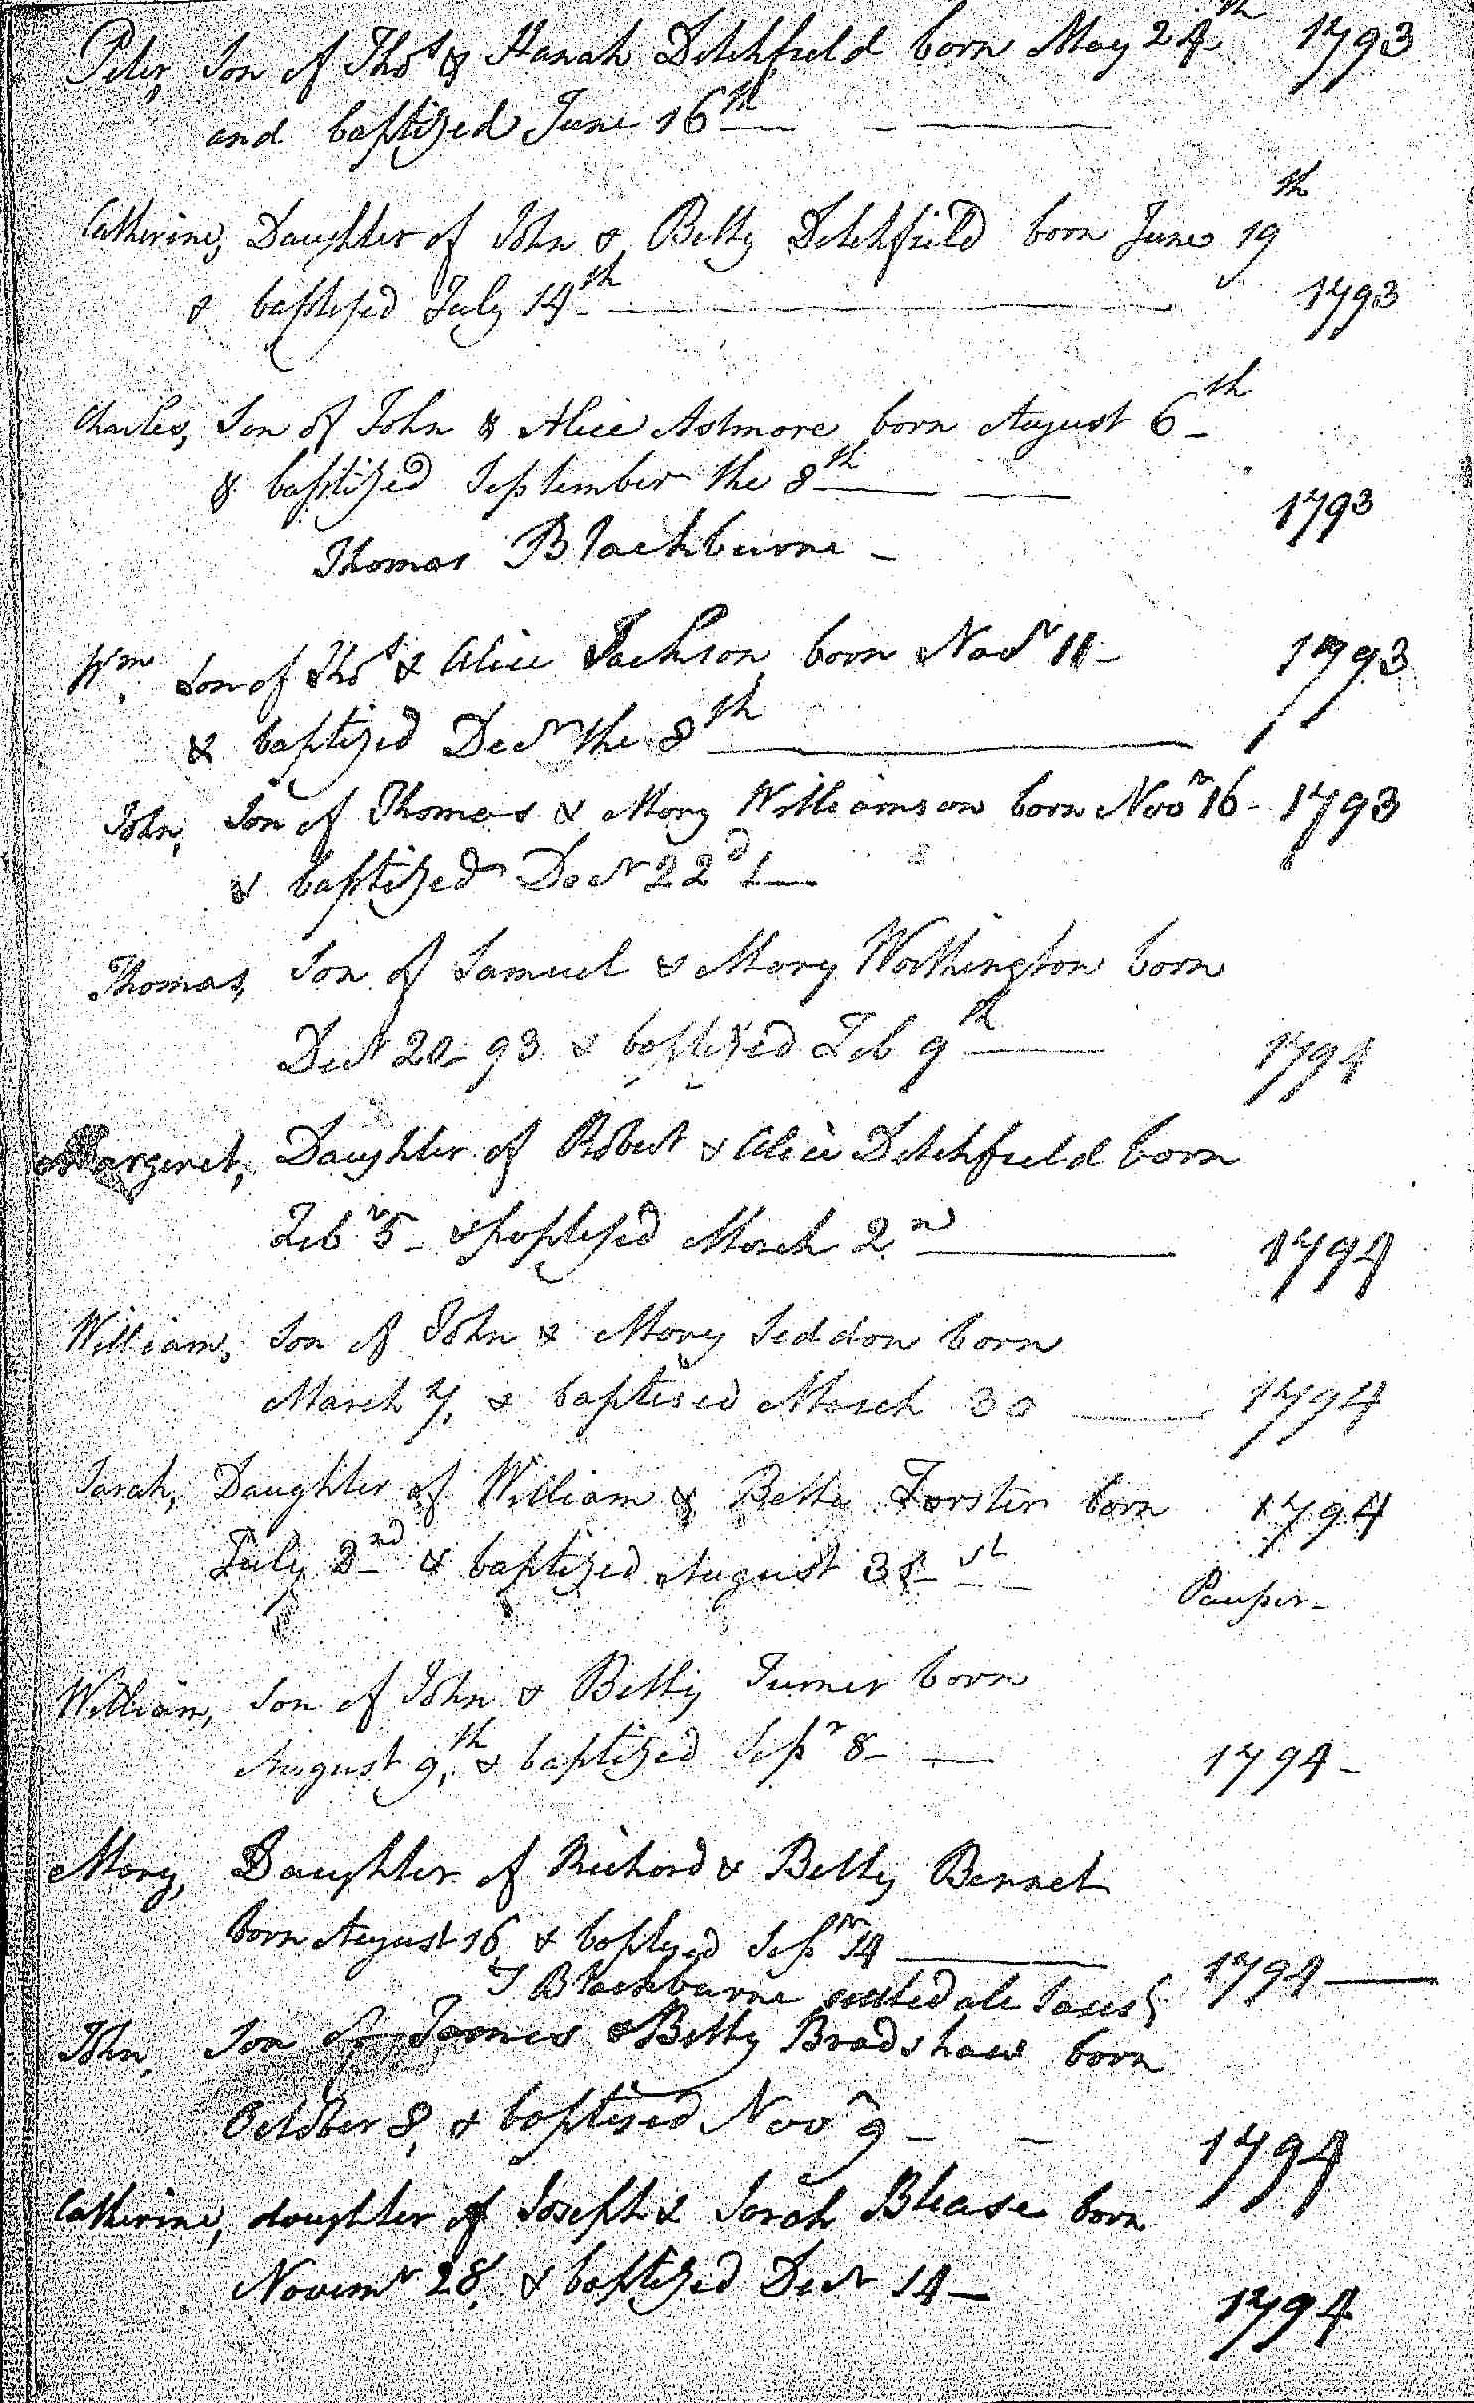 Peter, Son of Thos & Hanah Ditchfield born May 24th 1793
and baptized June 16th
Catherine, Daughter of John & Betty Ditchfield born June 19th
& baptized July 14th 1793
Charles, Son of John & Alice Astmore born August 6th
& baptized September the 8th 1793
Thomas Blackburne
Wm Son of Thos & Alice Jackson born Novr 11 1793
& baptized Decr the 8th
John, Son of Thomas & Mary Williamson born Novr 16 1793
& baptized Decr 22d
Thomas, Son of Samuel & Mary Worthington born
Decr 20 93 & baptized Feb 9th 1794
Margeret, Daughter of Robert & Alice Ditchfield born
Febr 5 & baptized March 2nd 1794
William, Son of John & Mary Seddon born
March 7, & baptised March 30 1794
Sarah, Daughter of William & Betty Forster born 1794
July 2nd & baptized August 31st Pauper
William, Son of John & Betty Turner born
August 9th, & baptized Sepr 8 1794
Mary, Daughter of Richard & Betty Bennet
born August 16, & baptized Sepr 14 1794
T Blackburne
John, Son of James & Betty Bradshaw born
October 8, & baptised Novr 9 1794
Catherine, daughter of Joseph & Sarah Blease born
Novemr 28, & baptized Decr 14 1794